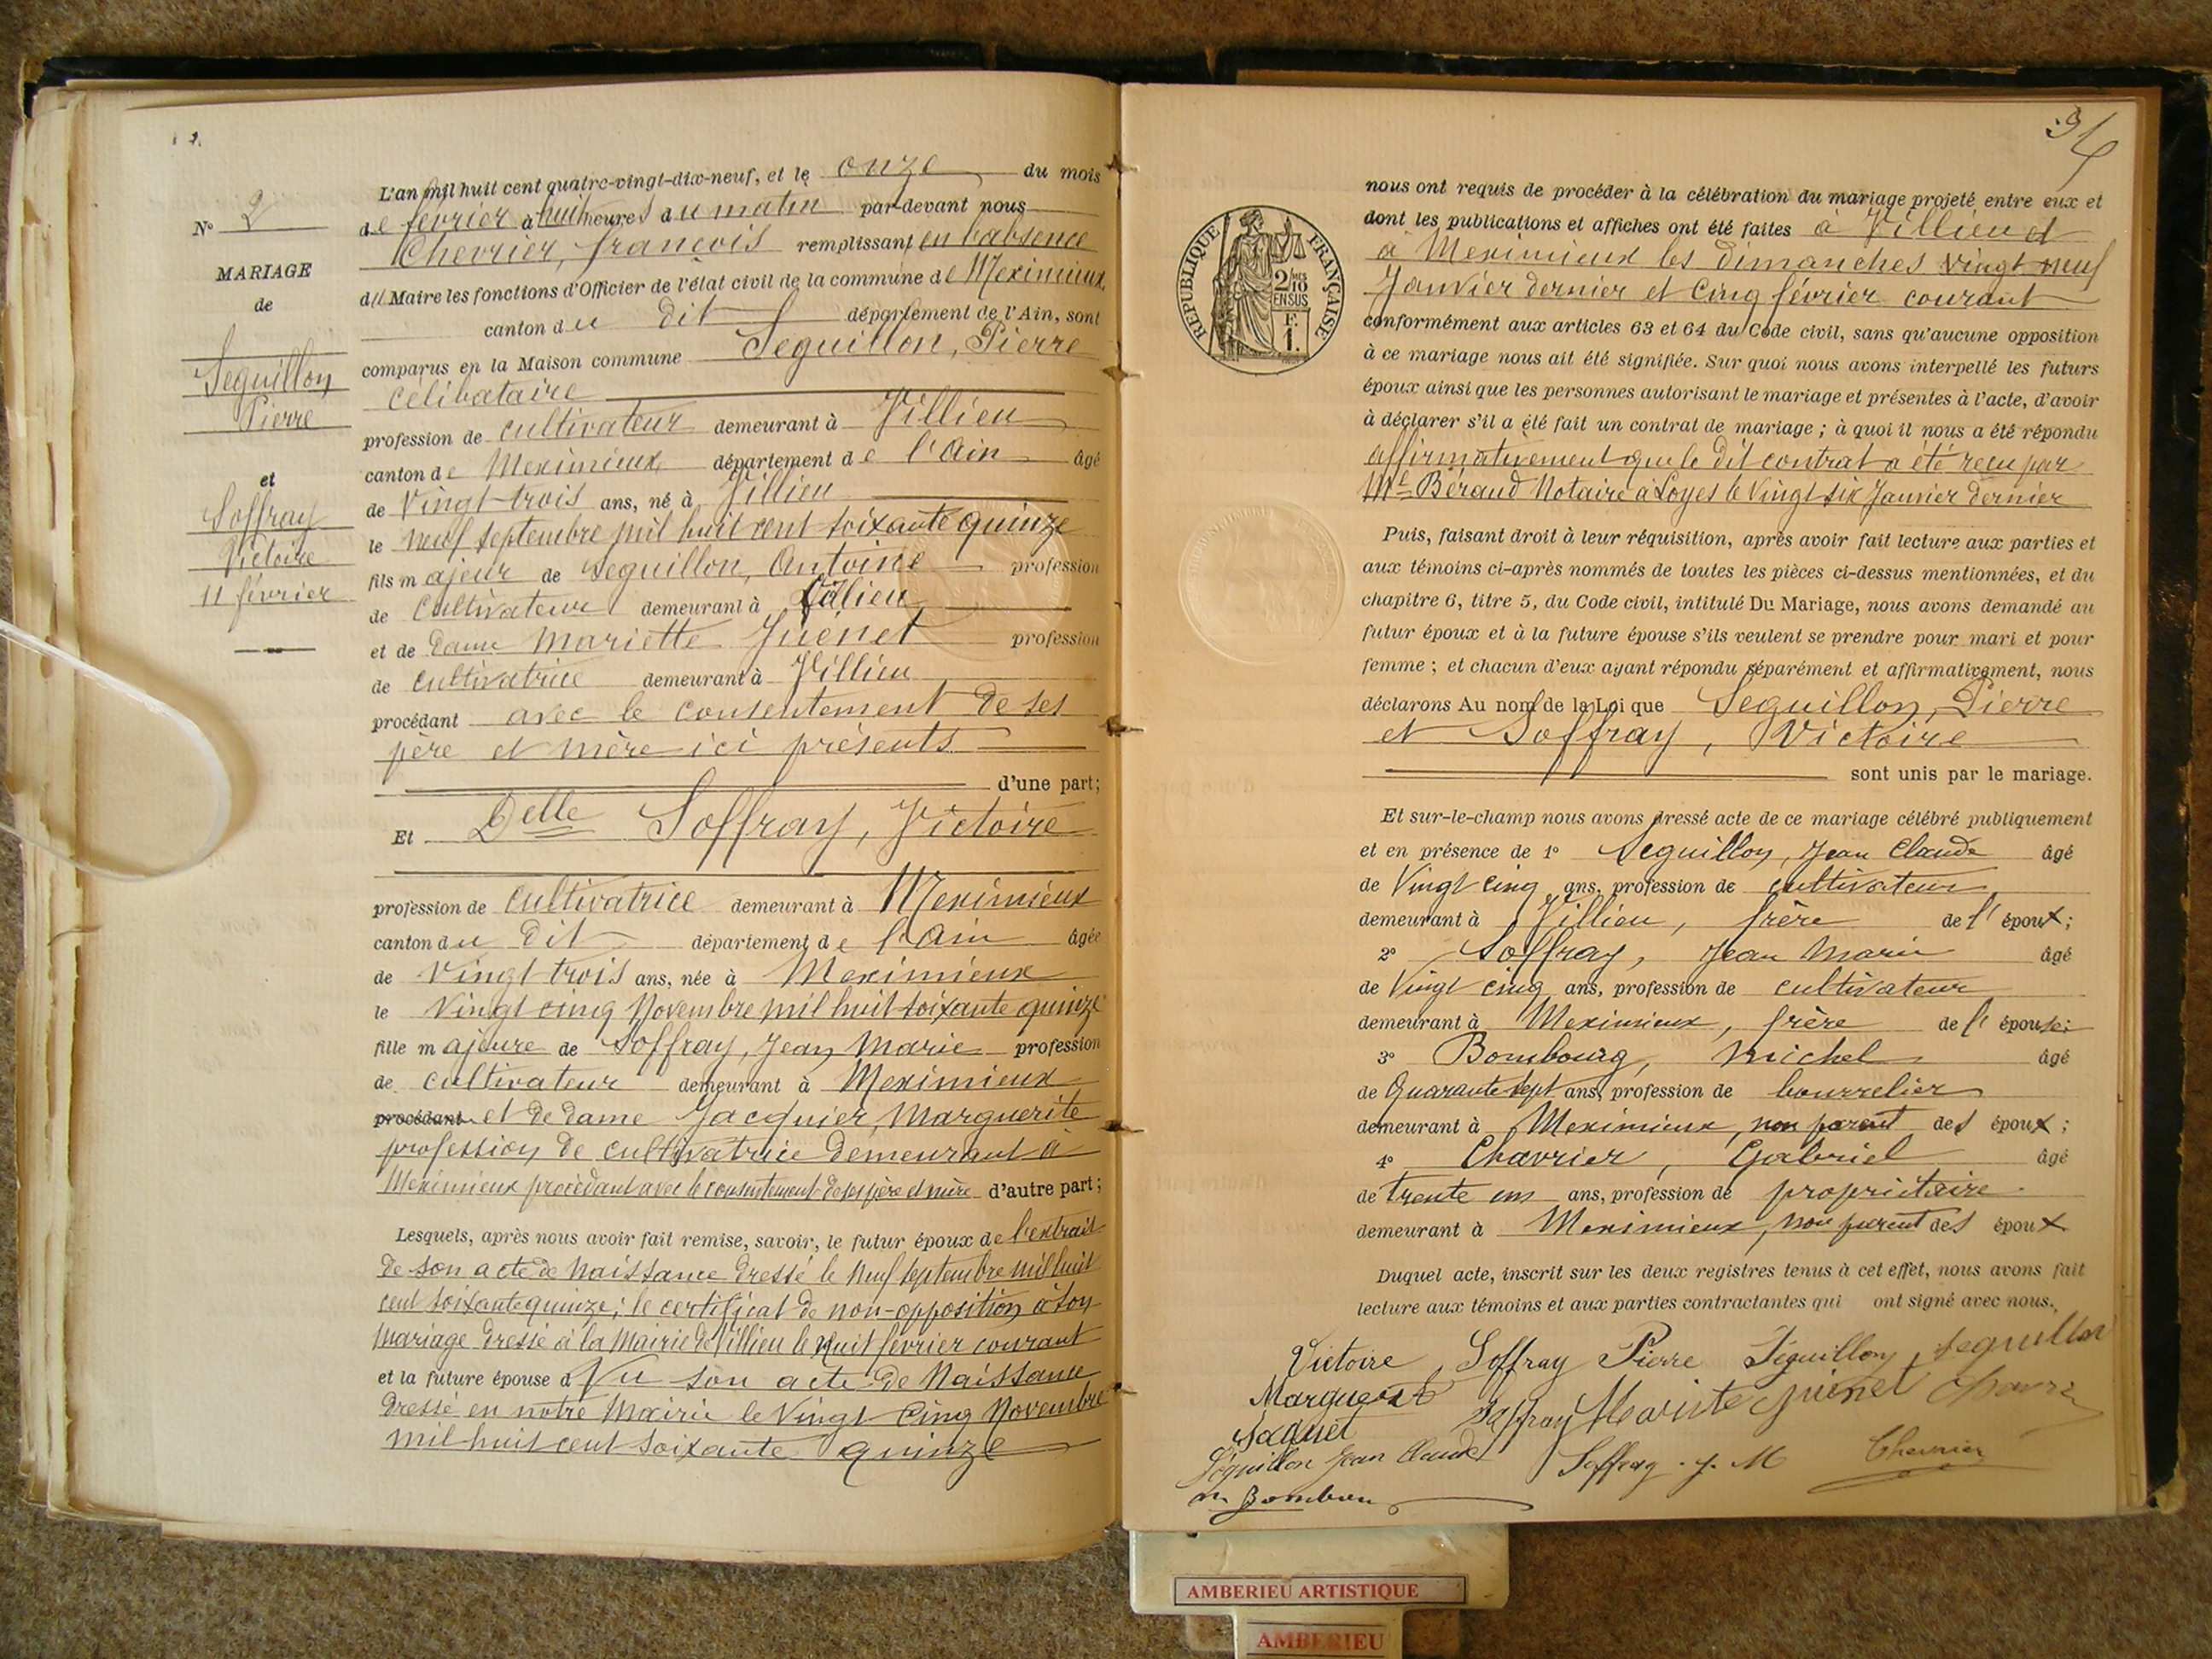 N° 2
MARIAGE
de
Seguillon
Pierre
et
Soffray
Victoire
11 février
L'an mil huit cent quatre-vingt-dix-neuf, et le onze du mois
de février à huit heures du matin par-devant nous
Chevrier, françois remplissant en l'absence
du Maire les fonctions d'Officier de l'état civil de la commune de Meximieux
canton du dit département de l'Ain, sont
comparus en la Maison commune Seguillon, Pierre
célibataire
profession de cultivateur demeurant à Villieu
canton de Meximieux département de l'Ain âgé
de Vingt-trois ans, né à Villieu
le neuf septembre mil huit cent soixante quinze
fils majeur de Seguillon, Antoine profession
de cultivateur demeurant à Villieu
et de Dame Mariette Juenet profession
de cultivatrice demeurant à Villieu
procédant avec le consentement de ses
père et mère ici présents
d'une part;
Et Delle Soffray, Victoire
profession de cultivatrice demeurant à Meximieux
canton du Dit département de l'Ain âgée
de Vingt trois ans, née à Meximieux
le Vingt cinq Novembre mil huit soixante quinze
fille majeure de Soffray, Jean Marie profession
de cultivateur demeurant à Meximieux
procédant et de dame Jacquier, Marguerite
profession de cultivatrice demeurant à
Meximieux procédant avec le consentement de ses père et mère d'autre part;
Lesquels, après nous avoir fait remise, savoir, le futur époux de l'extrait
de son acte de Naissance dressé le neuf septembre mil huit
cent soixante quinze; le certificat de non-opposition à son
mariage dressé à la Mairie de Villieu le huit février courant
et la future épouse d Vu son acte de Naissance
dressé en notre Mairie le Vingt Cinq Novembre
mil huit cent soixante quinze
RÉPUBLIQUE FRANÇAISE
2 MES
10
EN SUS
F.
1.
nous ont requis de procéder à la célébration du mariage projeté entre eux et
dont les publications et affiches ont été faites à Villieu et
à Meximieux les dimanches vingt neuf
Janvier dernier et Cinq février courant
conformément aux articles 63 et 64 du Code civil, sans qu'aucune opposition
à ce mariage nous ait été signifiée. Sur quoi nous avons interpellé les futurs
époux ainsi que les personnes autorisant le mariage et présentes à l'acte, d'avoir
à déclarer s'il a été fait un contrat de mariage; à quoi il nous a été répondu
affirmativement que le dit contrat a été reçu par
Me Béraud Notaire à Loyes le Vingt six Janvier dernier
Puis, faisant droit à leur réquisition, après avoir fait lecture aux parties et
aux témoins ci-après nommés de toutes les pièces ci-dessus mentionnées, et du
chapitre 6, titre 5, du Code civil, intitulé Du Mariage, nous avons demandé au
futur époux et à la future épouse s'ils veulent se prendre pour mari et pour
femme; et chacun d'eux ayant répondu séparément et affirmativement, nous
déclarons Au nom de la Loi que Seguillon, Pierre
et Soffray, Victoire
sont unis par le mariage.
Et sur-le-champ nous avons dressé acte de ce mariage célébré publiquement
et en présence de 1° Seguillon, Jean Claude âgé
de Vingt cinq ans, profession de cultivateur
demeurant à Villieu, frère de l'époux;
2° Soffray, Jean Marie âgé
de Vingt cinq ans, profession de cultivateur
demeurant à Meximieux, frère de l'épouse;
3° Bombourg, Michel âgé
de Quarante sept ans, profession de bourrelier
demeurant à Meximieux, non parent des époux;
4° Chavrier, Gabriel âgé
de trente un ans, profession de propriétaire
demeurant à Meximieux, non parent des époux
Duquel acte, inscrit sur les deux registres tenus à cet effet, nous avons fait
lecture aux témoins et aux parties contractantes qui ont signé avec nous.
Victoire Soffray Pierre Seguillon Seguillon
Marguerite Soffray Mariete Juenet
Jaquet
Séguillon Jean Claude Soffray J. M Chevrier
AMBERIEU ARTISTIQUE
AMBERIEU